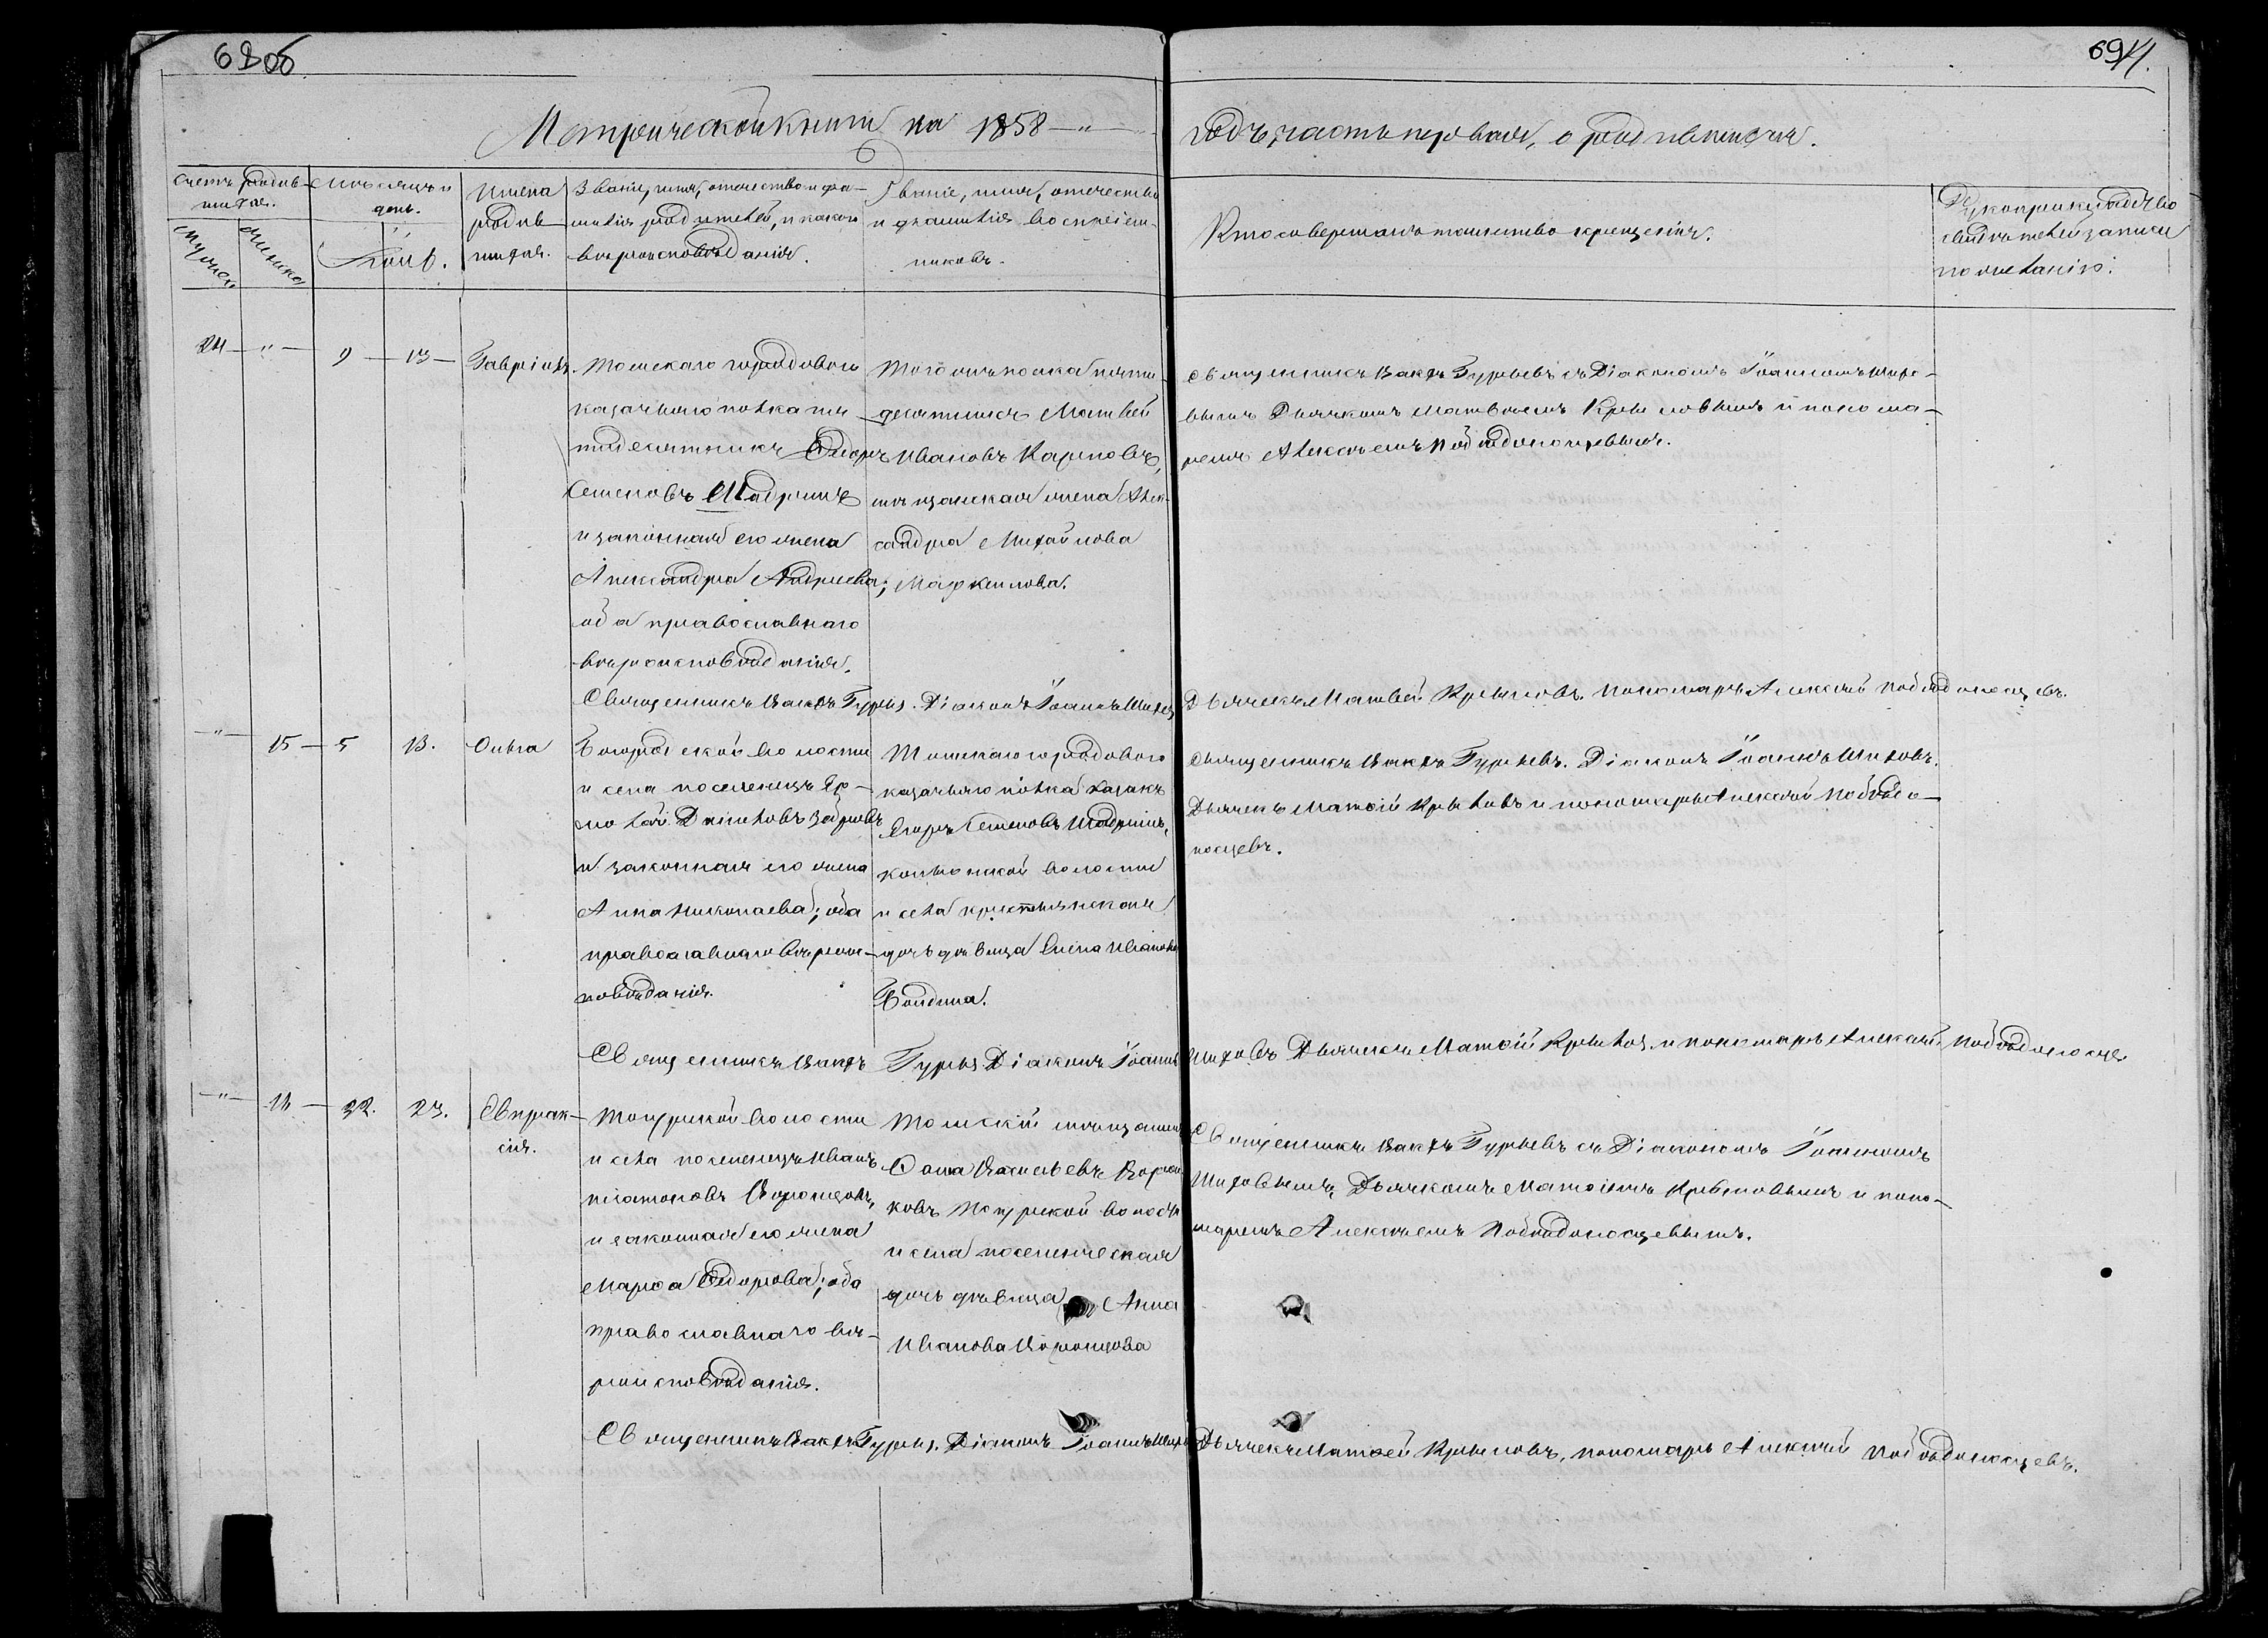 68об
69
Метрической книги на 1858
годъ, часть первая, о родившихся.
Счетъ родив-
шихся.
Мужеска
Женска
Мѣсяцъ и
день.
Іюль.
Имена
родив
шихся.
Званіе, имя, отчество и фа-
милія родителей, и какого
вѣроисповѣданія.
Званіе, имя, отчество
и фамилія воспріем-
никовъ.
Кто совершалъ таинство крещенія.
Рукоприкладство
свидѣтелей записи
по желанію.
24 — " — 9 — 13 —
Гавріилъ.
Томскаго городоваго
казачьяго полка пя
тидесятникъ Егоръ
Семеновъ Шадринъ
и законная его жена
Александра Андреева;
оба православнаго
вѣроисповѣданія.
Того жъ полка пяти-
десятникъ Матвей
Ивановъ Карповъ,
мѣщанская жена Алек-
сандра Михайлова
Маркелова.
Священникъ Гурьевъ съ Діакономъ Іоанномъ Шихо-
вымъ Дьячкомъ Матвѣемъ Крыловымъ и понома-
ремъ Алексѣемъ Побѣдоносцевымъ.
Священникъ Гурьев. Діаконъ Іоаннъ Шихов
Дьячекъ Матвей Крыловъ. Пономарь Алексѣй Побѣдоносцевъ.
— " — 15 — 5 13.
Ольга
Богородской волости
и села поселенецъ Ер-
молай
и законная его жена
Анна Николаева; оба
православнаго вѣроис-
повѣданія.
Томскаго городоваго
казачьяго полка казакъ
Егоръ Семеновъ Шадринъ,
волости
и села крестьянская
дочь дѣвица Елена Иванова
Священникъ Гурьевъ. Діаконъ Іоаннъ Шиховъ.
Дьячекъ Матѳій Крыловъ и пономарь Алексѣй Побѣдо-
носцевъ.
Священникъ Гурьев Діаконъ Іоаннъ
Шиховъ Дьячекъ Матѳій Крылов. и пономарь Алексѣй Побѣдоносце
— " — 16 — 22. 23.
Евпрак-
сія.
волости
и села поселенецъ Иванъ
Платоновъ Воронцовъ,
и законная его жена
Марѳа Ѳедорова; оба
православнаго вѣ-
роисповѣданія.
Томскій мѣщанинъ
Ѳома Васильевъ
волости
и села поселенческая
дочь дѣвица Анна
Иванова Воронцова
Священникъ Гурьевъ съ Діакономъ Іоанномъ
Шиховымъ, Дьячкомъ Матѳіемъ Крыловымъ и поно-
маремъ Алексѣемъ Побѣдоносцевымъ.
Священникъ Гурьев. Діаконъ Іоаннъ Шихов
Дьячекъ Матѳей Крыловъ, пономарь Алексѣй Побѣдоносцевъ.